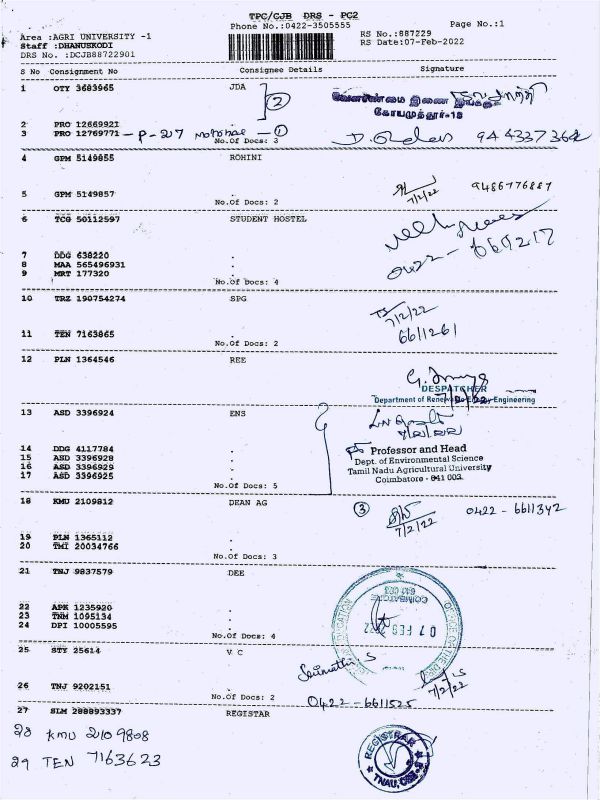 TPC/CJB DRS - PC2
Phone No.:0422-3505555
Page No.:1
Area :AGRI UNIVERSITY -1
RS No.:887229
Staff :DHANUSKODI
RS Date:07-Feb-2022
DRS No. :DCJB88722901
S No Consignment No Consignee Details Signature
1 OTY 3683965 JDA
2
வேளாண்மை இணை இயக்குநர்
கோயமுத்தூர்-18
2 PRO 12669921 .
3 PRO 12769771 - P-217 ①
No.Of Docs: 3
944337364
4 GPM 5149855 ROHINI
5 GPM 5149857 .
7/2/22 9486776887
No.Of Docs: 2
6 TCG 50112597 STUDENT HOSTEL
0422 - 6611217
7 DDG 638220 .
8 MAA 565496931 .
9 MRT 177320 .
No.Of Docs: 4
10 TRZ 190754274 SPG
7/2/22
6611261
11 TEN 7163865 .
No.Of Docs: 2
12 PLN 1364546 REE
DESPATCHER
7/2/22
Department of Renewable Energy Engineering
13 ASD 3396924 ENS
14 DDG 4117784 .
15 ASD 3396928 .
16 ASD 3396929 .
17 ASD 3396925 .
No.Of Docs: 5
Professor and Head
Dept. of Environmental Science
Tamil Nadu Agricultural University
Coimbatore - 641 003.
18 KMU 2109812 DEAN AG
③ 7/2/22 0422 - 6611342
19 PLN 1365112 .
20 TMI 20034766 .
No.Of Docs: 3
21 TNJ 9837579 DEE
22 APK 1235920 .
23 TNM 1095134 .
24 DPI 10005595 .
No.Of Docs: 4
COIMBATORE
641 003
07 FEB 2022
25 STY 25614 V C
26 TNJ 9202151 .
7/2/22
No.Of Docs: 2
0422 - 6611525
27 SLM 288893337 REGISTRAR
28 KMU 2109808
29 TEN 7163623
REGISTRAR
TNAU, CBE-3